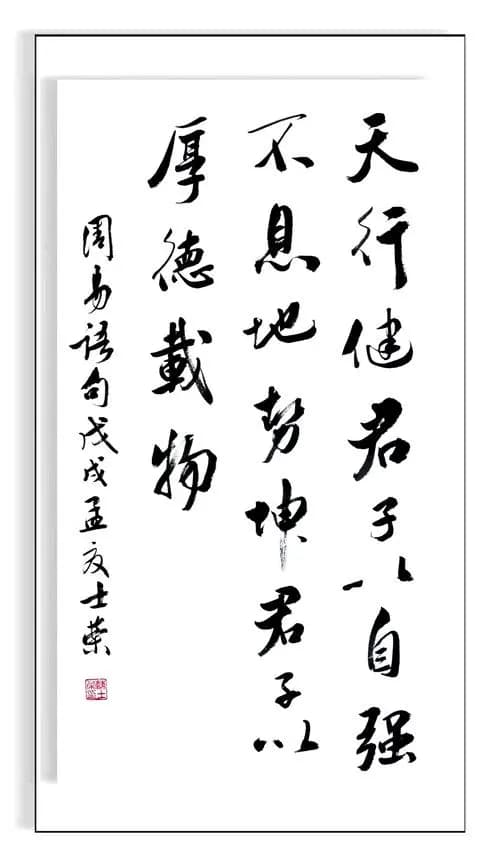 天行健君子以自强
不息地势坤君子以
厚德載物
周易语句戊戌孟夏士荣